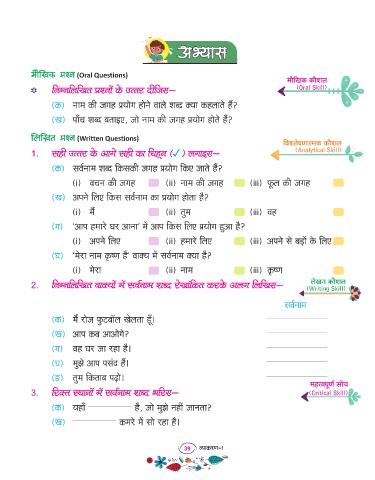 अभ्यास
मौखिक प्रश्न (Oral Questions)
मौखिक कौशल
(Oral Skill)
✡ निम्नलिखित प्रश्नों के उत्तर दीजिस–
(क) नाम की जगह प्रयोग होने वाले शब्द क्या कहलाते हैं?
(ख) पाँच शब्द बताइए, जो नाम की जगह प्रयोग होते हैं?
लिखित प्रश्न (Written Questions)
विश्लेषणात्मक कौशल
(Analytical Skill)
1. सही उत्तर के आगे सही का चिह्न (✓) लगाइस–
(क) सर्वनाम शब्द किसकी जगह प्रयोग किए जाते हैं?
(i) वचन की जगह (ii) नाम की जगह (iii) फूल की जगह
(ख) अपने लिए किस सर्वनाम का प्रयोग होता है?
(i) मैं (ii) तुम (iii) वह
(ग) 'आप हमारे घर आना' में आप किस लिए प्रयोग हुआ है?
(i) अपने लिए (ii) हमारे लिए (iii) अपने से बड़ों के लिए
(घ) 'मेरा नाम कृष्ण है' वाक्य में सर्वनाम क्या है?
(i) मेरा (ii) नाम (iii) कृष्ण
लेखन कौशल
(Writing Skill)
2. निम्नलिखित वाक्यों में सर्वनाम शब्द रेखांकित करके अलग लिखिस–
सर्वनाम
(क) मैं रोज फुटबॉल खेलता हूँ।
(ख) आप कब आओगे?
(ग) वह घर जा रहा है।
(घ) मुझे आप पसंद हैं।
(ङ) तुम किताब पढ़ो।
महत्वपूर्ण सोच
(Critical Skill)
3. रिक्त स्थानों में सर्वनाम शब्द भरिस–
(क) यहाँ ________ है, जो मुझे नहीं जानता?
(ख) ________ कमरे में सो रहा है।
39 व्याकरण-1